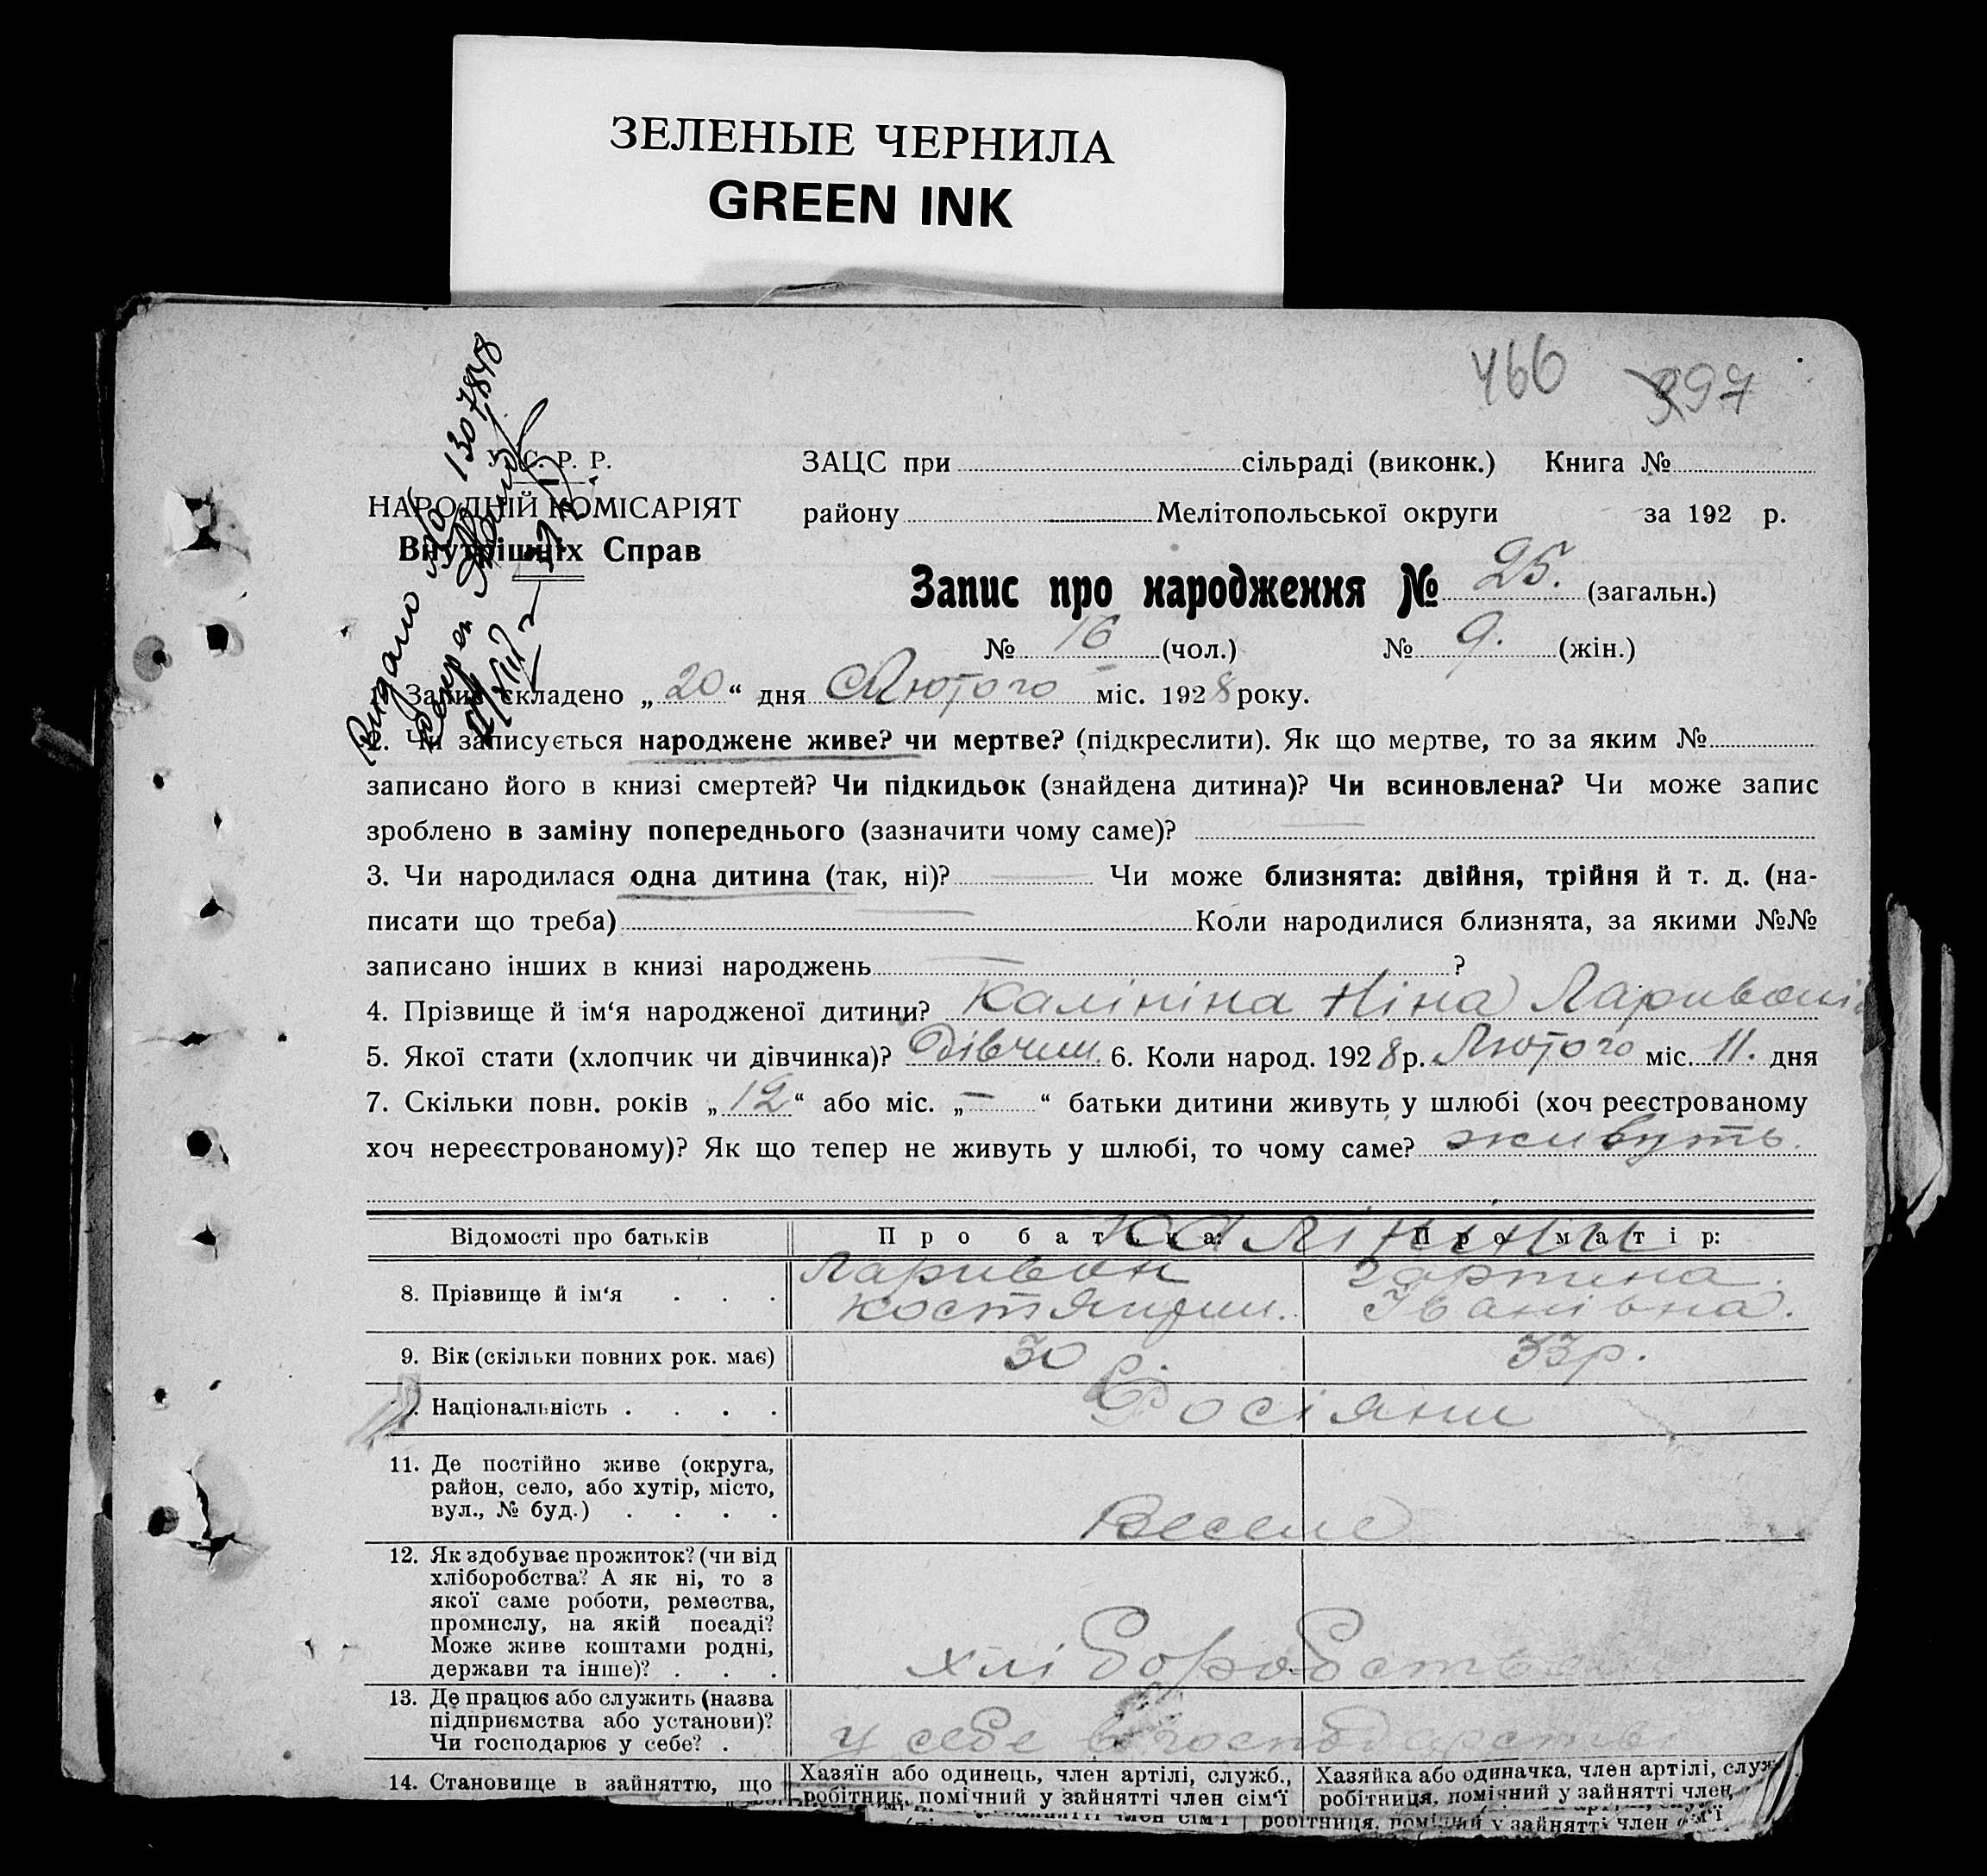 ЗЕЛЕНЫЕ ЧЕРНИЛА
GREEN INK
466 397
У. С. Р. Р.
НАРОДНІЙ КОМІСАРІЯТ
Внутрішніх Справ
Видано
1307848
ЗАЦС при сільраді (виконк.) Книга №
району Мелітопольської округи за 192 р.
Запис про народження № 25. (загальн.)
№ 16 (чол.) № 9. (жін.)
1. Запис складено „20“ дня Лютого міс. 1928 року.
2. Чи записується народжене живе? чи мертве? (підкреслити). Як що мертве, то за яким №
записано його в книзі смертей? Чи підкидьок (знайдена дитина)? Чи всиновлена? Чи може запис
зроблено в заміну попереднього (зазначити чому саме)?
3. Чи народилася одна дитина (так, ні)? Чи може близнята: двійня, трійня й т. д. (на-
писати що треба) Коли народилися близнята, за якими №№
записано інших в книзі народжень ?
4. Прізвище й ім‘я народженої дитини? Калініна Ніна
5. Якої стати (хлопчик чи дівчинка)? Дівчин. 6. Коли народ. 1928 р. Лютого міс. 11. дня
7. Скільки повн. років „12“ або міс. „—“ батьки дитини живуть у шлюбі (хоч реєстрованому
хоч нереєстрованому)? Як що тепер не живуть у шлюбі, то чому саме? живуть.
Відомості про батьків Про батька: Про матір:
Калініни
8. Прізвище й ім‘я . . . Ларивон
Івановна.
9. Вік (скільки повних рок. має) 30 33 р.
10. Національність . . . . Росіяни
11. Де постійно живе (округа,
район, село, або хутір, місто,
вул., № буд.) . . . . Веселе
12. Як здобуває прожиток? (чи від
хліборобства? А як ні, то з
якої саме роботи, ремества,
промислу, на якій посаді?
Може живе коштами родні,
держави та інше)? . . . хліборобство
13. Де працює або служить (назва
підприємства або установи)?
Чи господарює у себе? . у себе в господарстві
14. Становище в зайняттю, що
Хазяїн або одинець, член артілі, служб.,
робітник, помічний у зайнятті член сім‘ї
Хазяйка або одиначка, член артілі, служ
робітниця, помічний у зайнятті член,
зайнятті член сім‘ї робітниця, помічний у зайнятті член